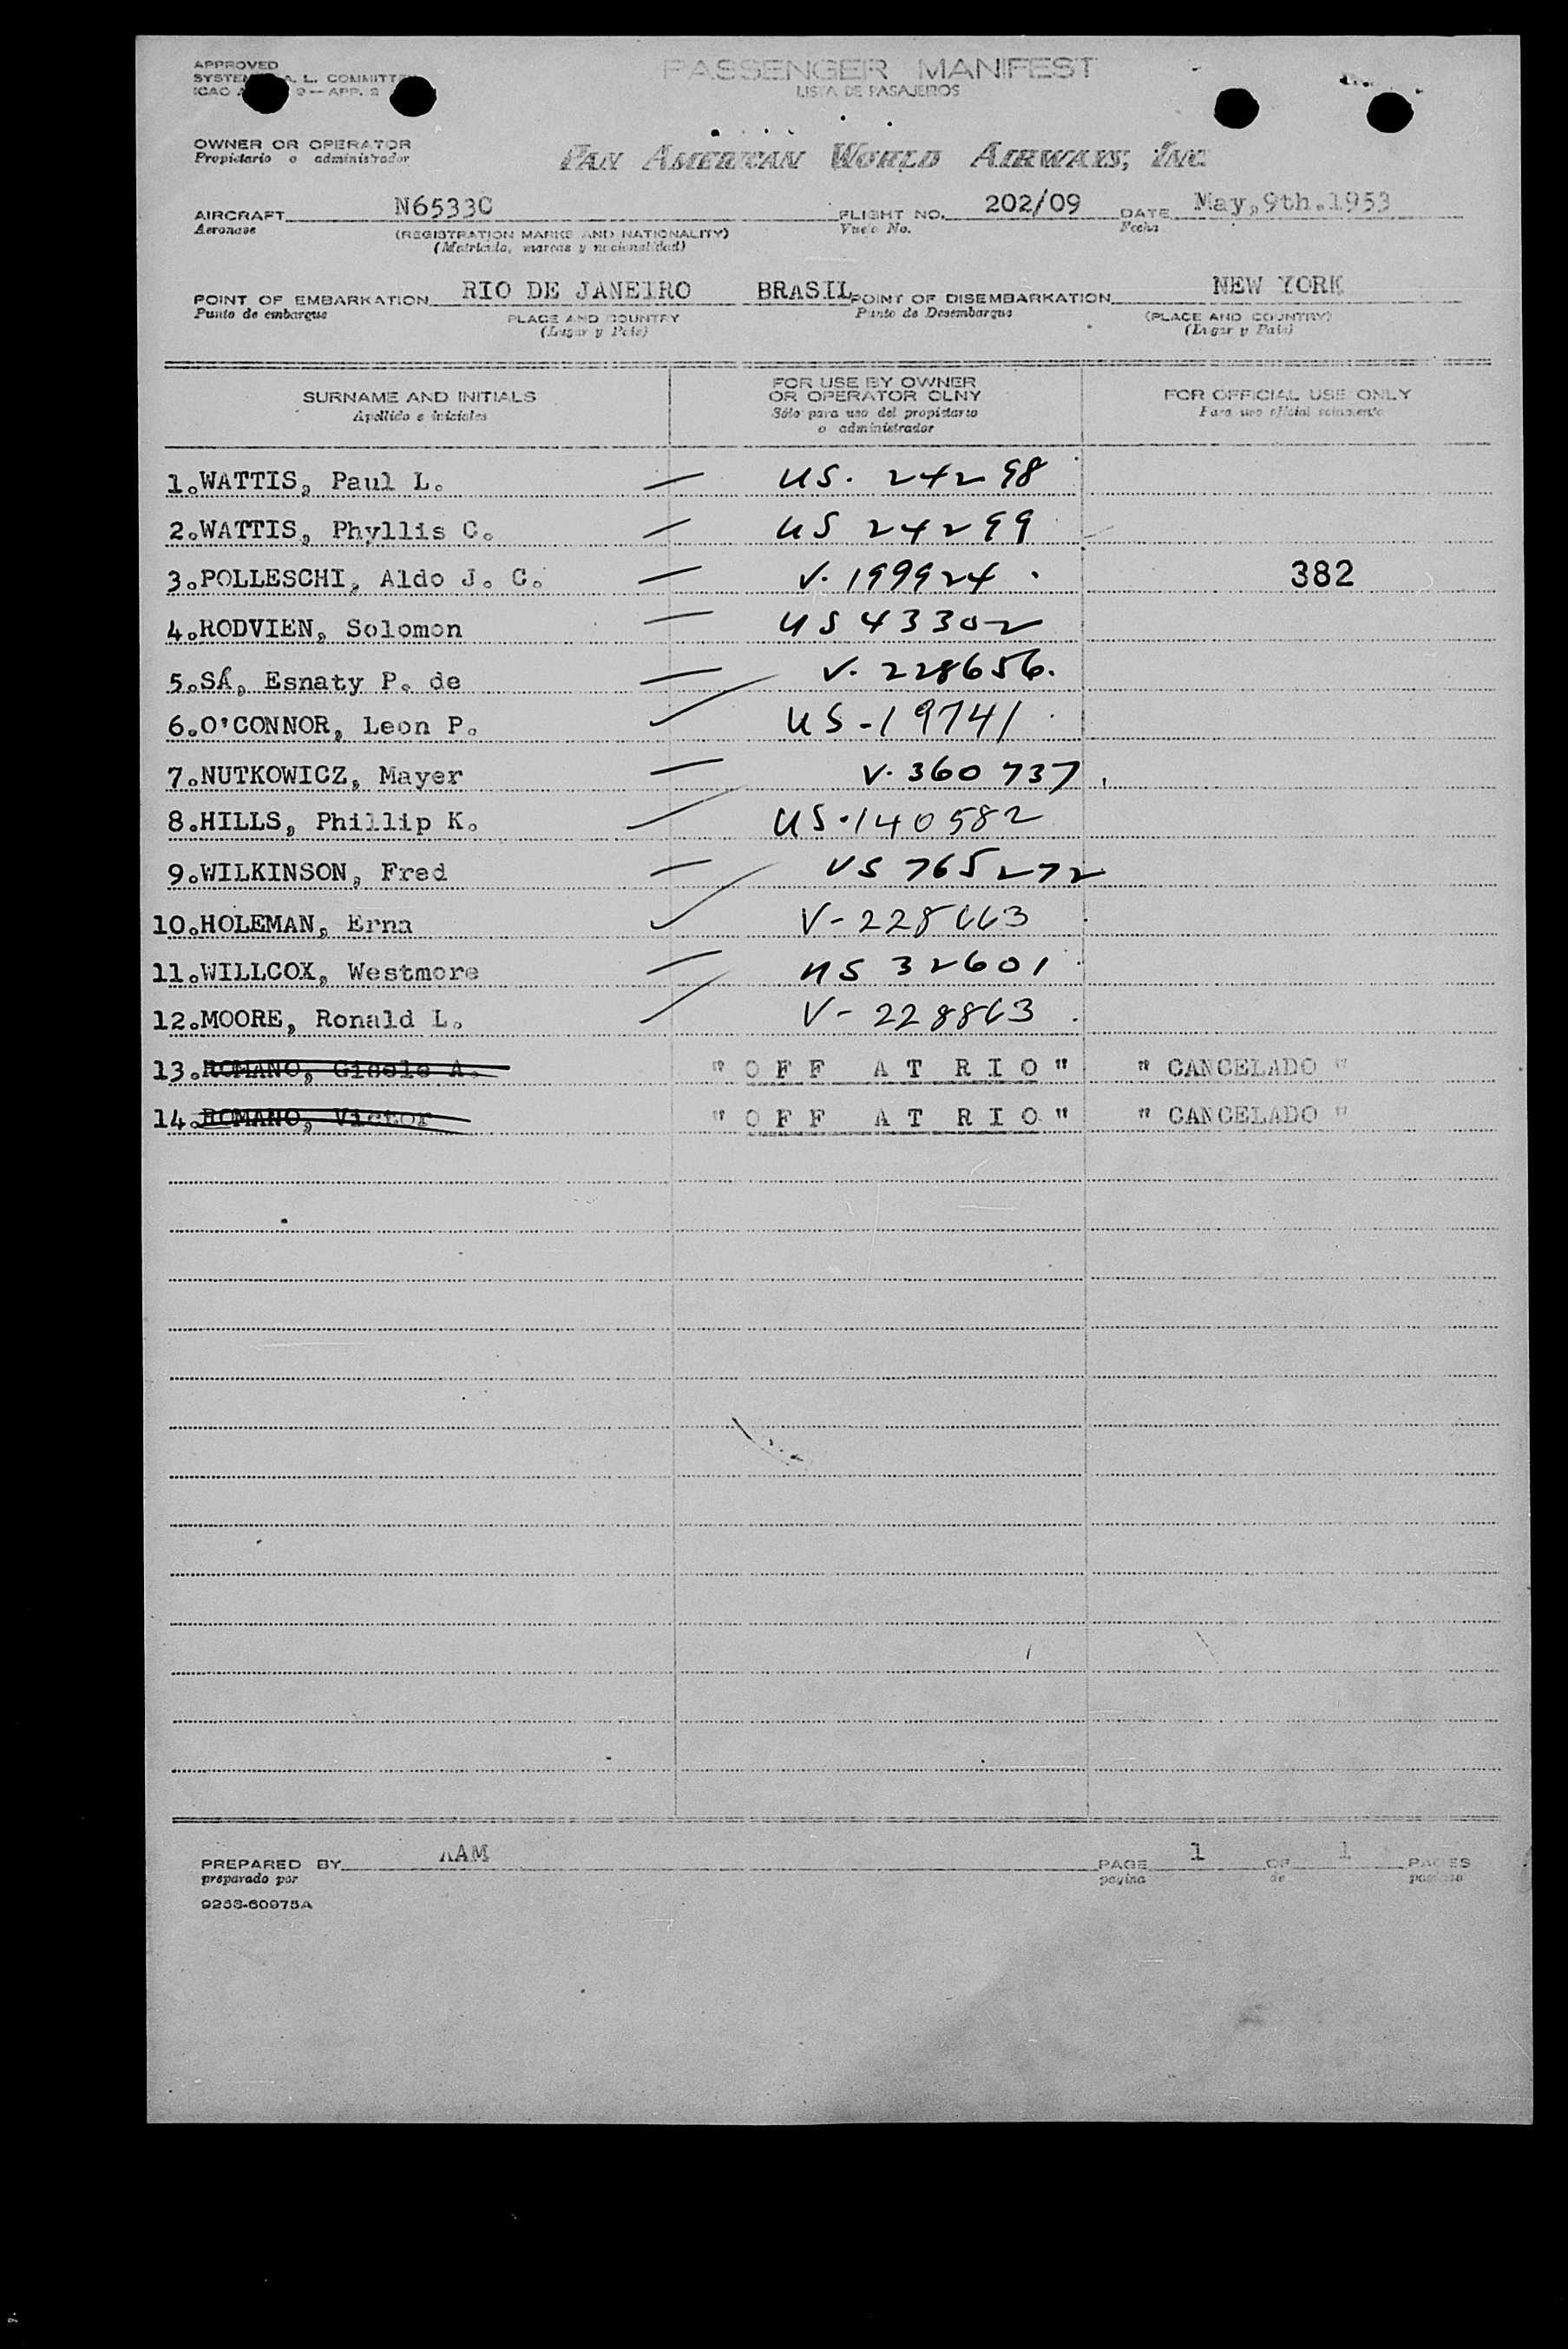 APPROVED
PASSENGER MANIFEST
LISTA DE PASAJEROS
OWNER OR OPERATOR
Propietario o administrador
PAN AMERICAN WORLD AIRWAYS, INC
AIRCRAFT N6533C FLIGHT NO. 202/09 DATE May,9th.1953
Aeronave (REGISTRATION MARKS AND NATIONALITY) Vuelo No. Fecha
(Matricula, marcas y nacionalidad)
POINT OF EMBARKATION RIO DE JANEIRO BRASIL POINT OF DISEMBARKATION NEW YORK
Punto de embarque PLACE AND COUNTRY Punto de Desembarque (PLACE AND COUNTRY)
(Lugar y Pais) (Lugar y Pais)
SURNAME AND INITIALS
Apellido e iniciales
FOR USE BY OWNER
OR OPERATOR OLNY
Sólo para uso del propietario
o administrador
FOR OFFICIAL USE ONLY
Para uso oficial solamente
1.WATTIS, Paul L. — US. 24298
2.WATTIS, Phyllis C. — US 24299
3.POLLESCHI, Aldo J. C. — V. 199924 . 382
4.RODVIEN, Solomon — US 43302
5.SÁ, Esnaty P. de — V. 228656.
6.O'CONNOR, Leon P. ✓ US-19741
7.NUTKOWICZ, Mayer — V. 360 737
8.HILLS, Phillip K. ✓ US.140582
9.WILKINSON, Fred — VS 765272
10.HOLEMAN, Erna ✓ V-228663
11.WILLCOX, Westmore — US 32601
12.MOORE, Ronald L. ✓ V-228863
13.ROMANO, Gisele A. "OFF AT RIO" "CANCELADO"
14.ROMANO, Victor "OFF AT RIO" "CANCELADO"
PREPARED BY AAM PAGE 1 OF 1 PAGES
preparado por pagina de paginas
9253-60975A